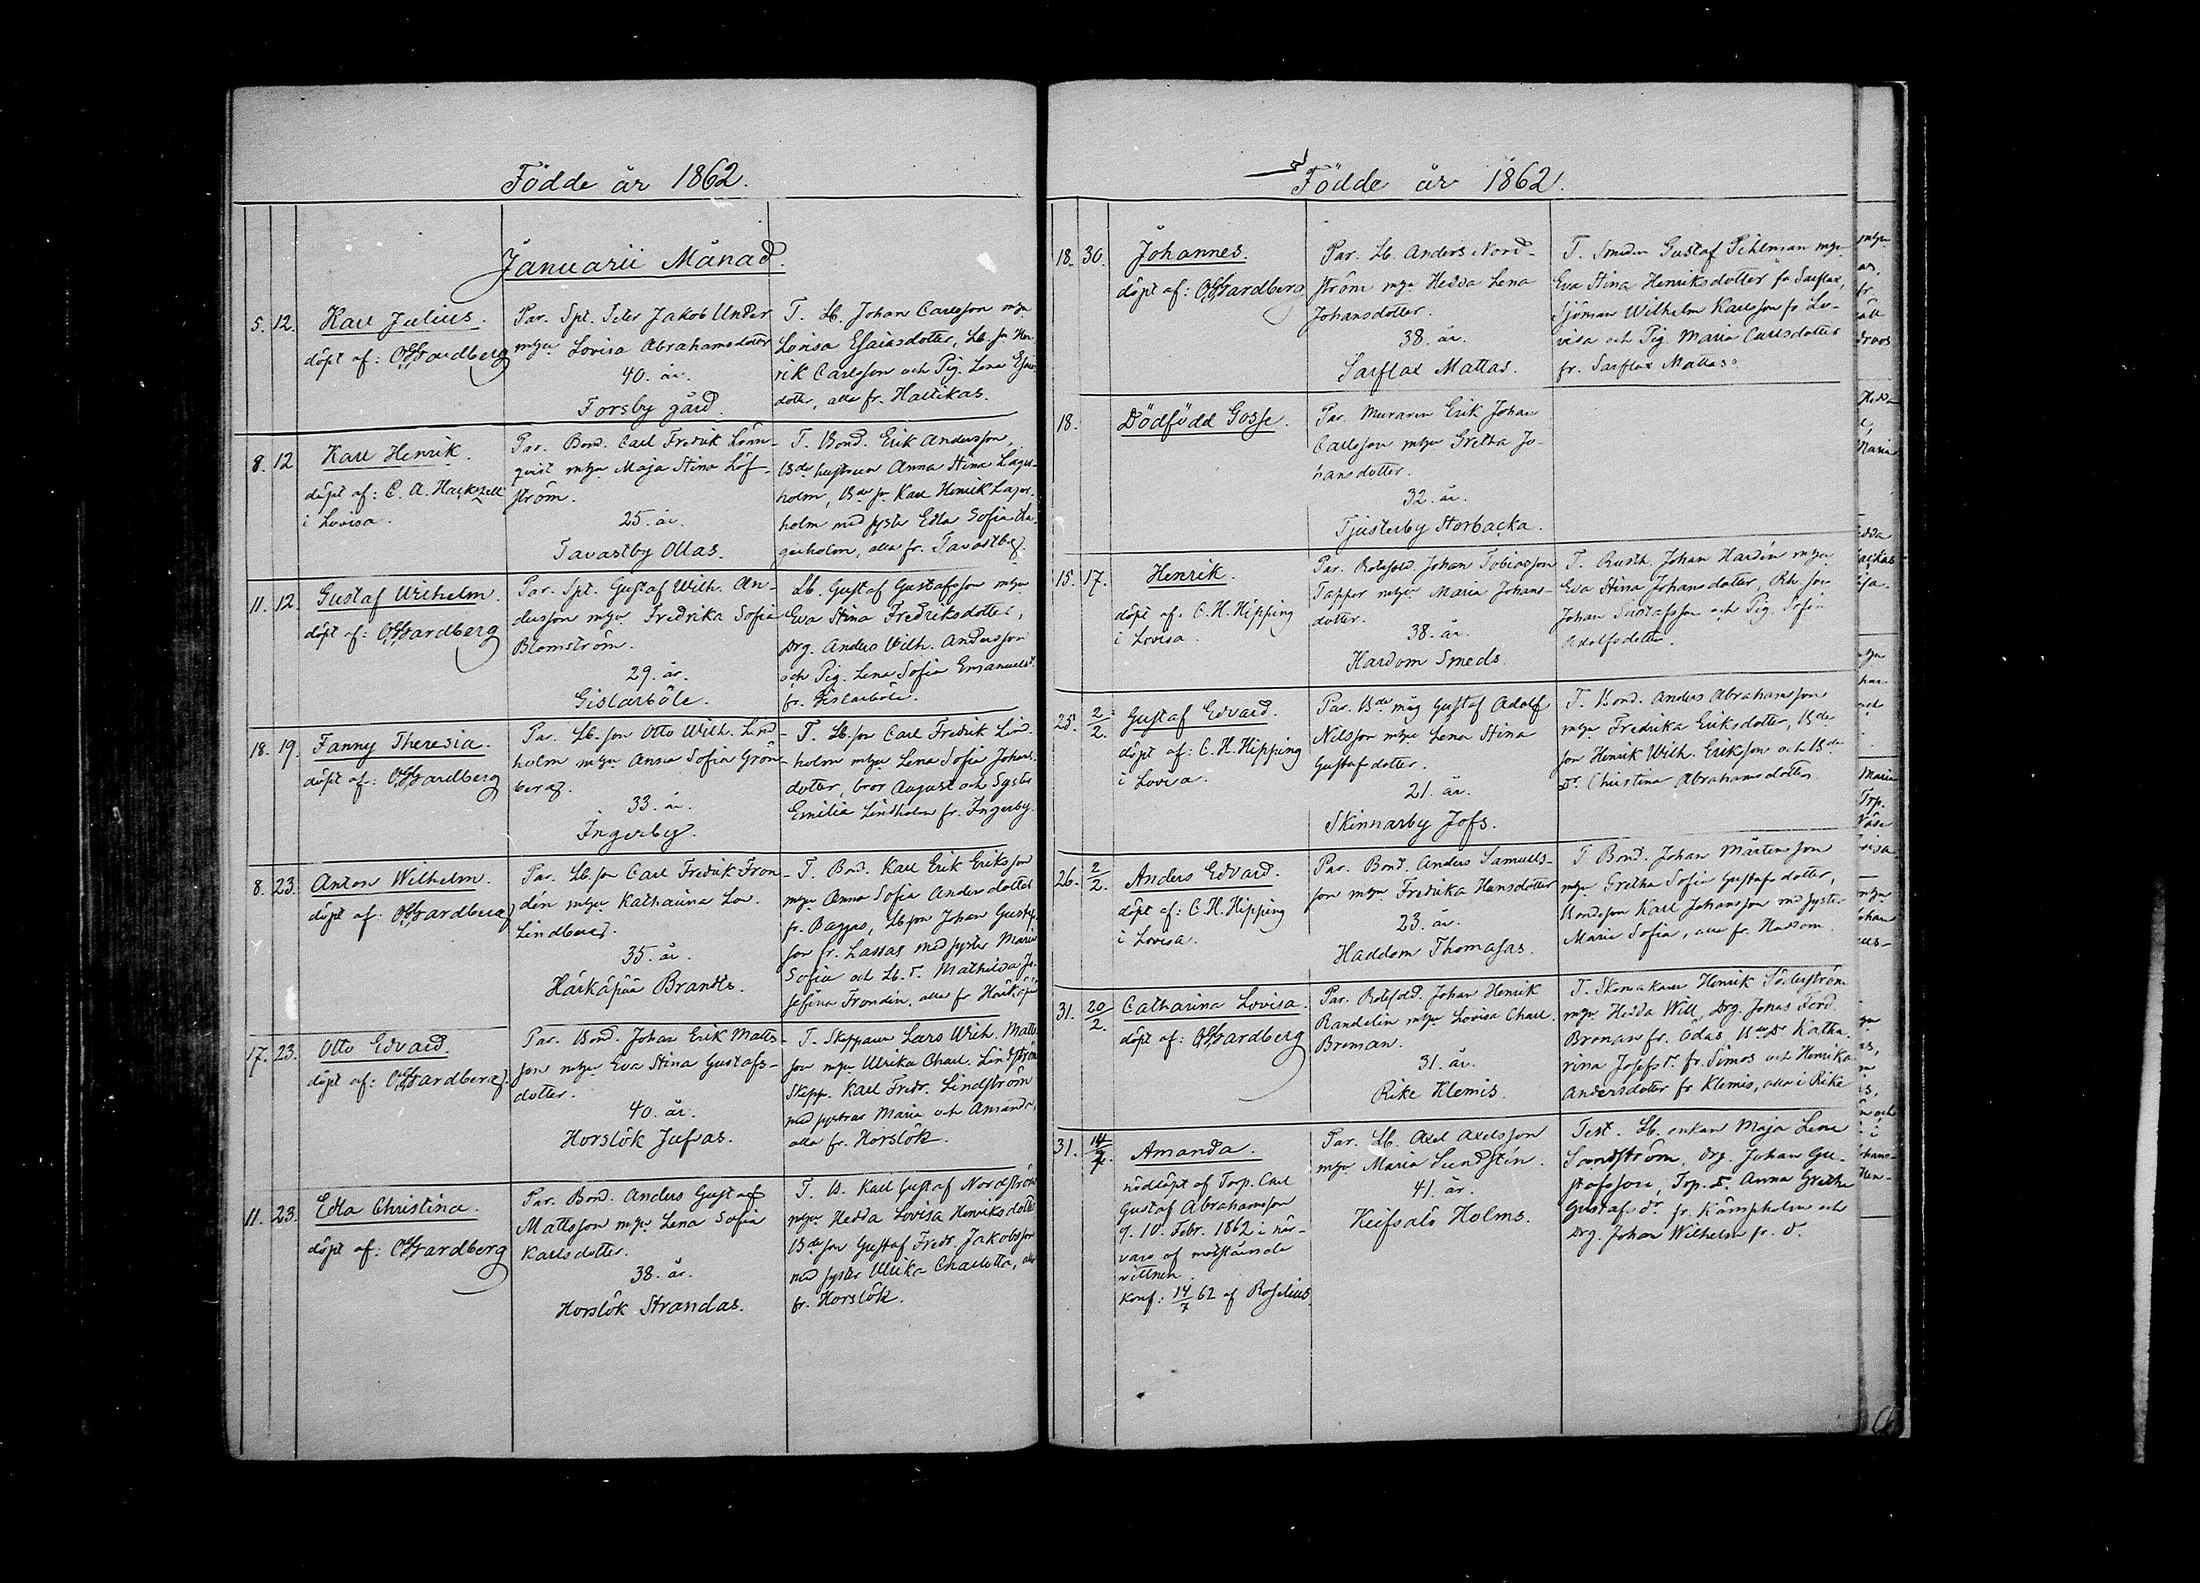 Födde år 1862.
Januarii Månad.
5. 12. Karl Julius.
döpt af: O. Gardberg
Par. Spt. Peter Jakob Under
mhu Lovisa Abrahamsdotter
40. år.
Forsby gård.
T. Lb. Johan Carlsson mhu
Lovisa Esaiasdotter, Lb. sn Hen-
rik Carlsson och Pig. Lena Esai-
dotter, alla fr. Hallikas.
8. 12 Karl Henrik.
döpt af: C. A. Hackzell
i Lovisa.
Par. Bond. Carl Fredrik Löm-
qvist mhu Maja Stina Löf-
ström.
25. år.
Tavastby Ollas.
T. Bond. Erik Andersson,
Bde hustrun Anna Stina Lager-
holm, Bde sn Karl Henrik Lager-
holm med syster Edla Sofia La-
gerholm, alla fr. Tavastby.
11. 12. Gustaf Wilhelm.
döpt af: O. Gardberg
Par. Spt. Gustaf Wilh. An-
dersson mhu Fredrika Sofia
Blomström.
29. år.
Gislarböle.
Lb. Gustaf Gustafsson mhu
Eva Stina Fredriksdotter,
Drg. Anders Wilh. Andersson
och Pig. Lena Sofia Emanuelsd.
fr. Gislarböle.
18. 19. Fanny Theresia.
döpt af: O. Gardberg
Par. Lb. son Otto Wilh. Lind-
holm mhu Anna Sofia Grön-
berg.
33. år.
Ingerby.
T. Lb. son Carl Fredrik Lind-
holm mhu Lena Sofia Johans-
dotter, bror August och Syster
Emilia Lindholm fr. Ingerby.
8. 23. Anton Wilhelm.
döpt af: O. Gardberg
Par. Lb. son Carl Fredrik Fron-
dén mhu Katharina Lov.
Lindberg.
35. år.
Härkäpää Brandts.
T. Bond. Karl Erik Eriksson
mhu Anna Sofia Andersdotter
fr. Baggas, Lb son Johan Gustafs-
son fr. Lassas med syster Maria
Sofia och Lb. d. Mathilda Jo-
sefina Frondén, alla fr Härkäpää
17. 23. Otto Edvard.
döpt af: O. Gardberg.
Par. Bond. Johan Erik Matts-
son mhu Eva Stina Gustafs-
dotter.
40. år.
Horslök Jufvas.
T. Skepparen Lars Wilh. Matts-
son mhu Ulrika Charl. Lindström
Skepp. Karl Fredr. Lindström
med systrar Maria och Amanda,
alla fr. Horslök.
11. 23. Edla Christina.
döpt af: O. Gardberg
Par. Bond. Anders Gustaf
Mattsson mhu Lena Sofia
Karlsdotter.
38. år.
Horslök Strandas.
T. B. Karl Gustaf Nordström
mhu Hedda Lovisa Henriksdotter
Bde son Gustaf Fredr. Jakobsson
med syster Ulrika Charlotta, alla
fr. Horslök.
Födde år 1862.
18. 30. Johannes.
döpt af: O. Gardberg
Par. Lb. Anders Nord-
ström mhu Hedda Lena
Johansdotter.
38. år.
Sarflax Mattas.
T. Smeden Gustaf Pihlman mhu
Eva Stina Henriksdotter fr Sarflax,
Sjöman Wilhelm Karlsson fr Lo-
visa och Pig. Maria Carlsdotter
fr. Sarflax Mattas.
18. Dödfödd Gosse.
Par. Muraren Erik Johan
Carlsson mhu Gretha Jo-
hansdotter.
32. år.
Tjusterby Storbacka.
15. 17. Henrik.
döpt af. C. H. Hipping
i Lovisa
Par. Rotesold. Johan Tobiasson
Tapper mhu Maria Johans-
dotter.
38. år.
Hardom Smeds.
T. Rusth. Johan Hardén mhu
Eva Stina Johansdotter, Rh. son
Johan Gustafsson och Pig. Sofia
Adolfsdotter.
25. 2/2. Gustaf Edvard.
döpt af: C. H. Hipping
i Lovisa.
Par. Bde måg Gustaf Adolf
Nilsson mhu Lena Stina
Gustafsdotter.
21. år.
Skinnarby Jofs.
T. Bond. Anders Abrahamsson
mhu Fredrika Eriksdotter, Bde
son Henrik Wilh. Eriksson och Bde
Dr. Christina Abrahamsdotter
26. 2/2. Anders Edvard.
döpt af: C. H. Hipping
i Lovisa.
Par. Bond. Anders Samuels-
son mhu Fredrika Hansdotter
23. år.
Haddom Thomasas.
T Bond. Johan Mårtensson
mhu Gretha Sofia Gustafsdotter,
Bondeson Karl Johansson med syster
Maria Sofia, alla fr. Haddom.
31. 20/2. Catharina Lovisa.
döpt af: O. Gardberg
Par. Rotesold. Johan Henrik
Randelin mhu Lovisa Charl.
Broman.
31. år.
Rike Klemis.
T. Skomakare Henrik Söderström
mhu Hedda Will, Drg. Jonas Ferd.
Broman fr. Odas, Bde Dr Katha-
rina Josefsd. fr. Simos och Henrika
Andersdotter fr Klemis, alla i Rike
31. 14/7. Amanda.
nöddöpt af Torp. Carl
Gustaf Abrahamsson
d. 10. Febr. 1862 i när-
varo af motstående
vittnen.
Konf: 14/7 62 af Roselius.
Par. Lb. Axel Axelsson
mhu Maria Sundstén.
41. år.
Keifsalö Holms.
Test. Lb. enkan Maja Lena
Sandström, Drg. Johan Gu-
stafsson, Torp. d. Anna Gretha
Gustafsdr. fr. Kampholm och
Drg. Johan Wilhelm fr. d.